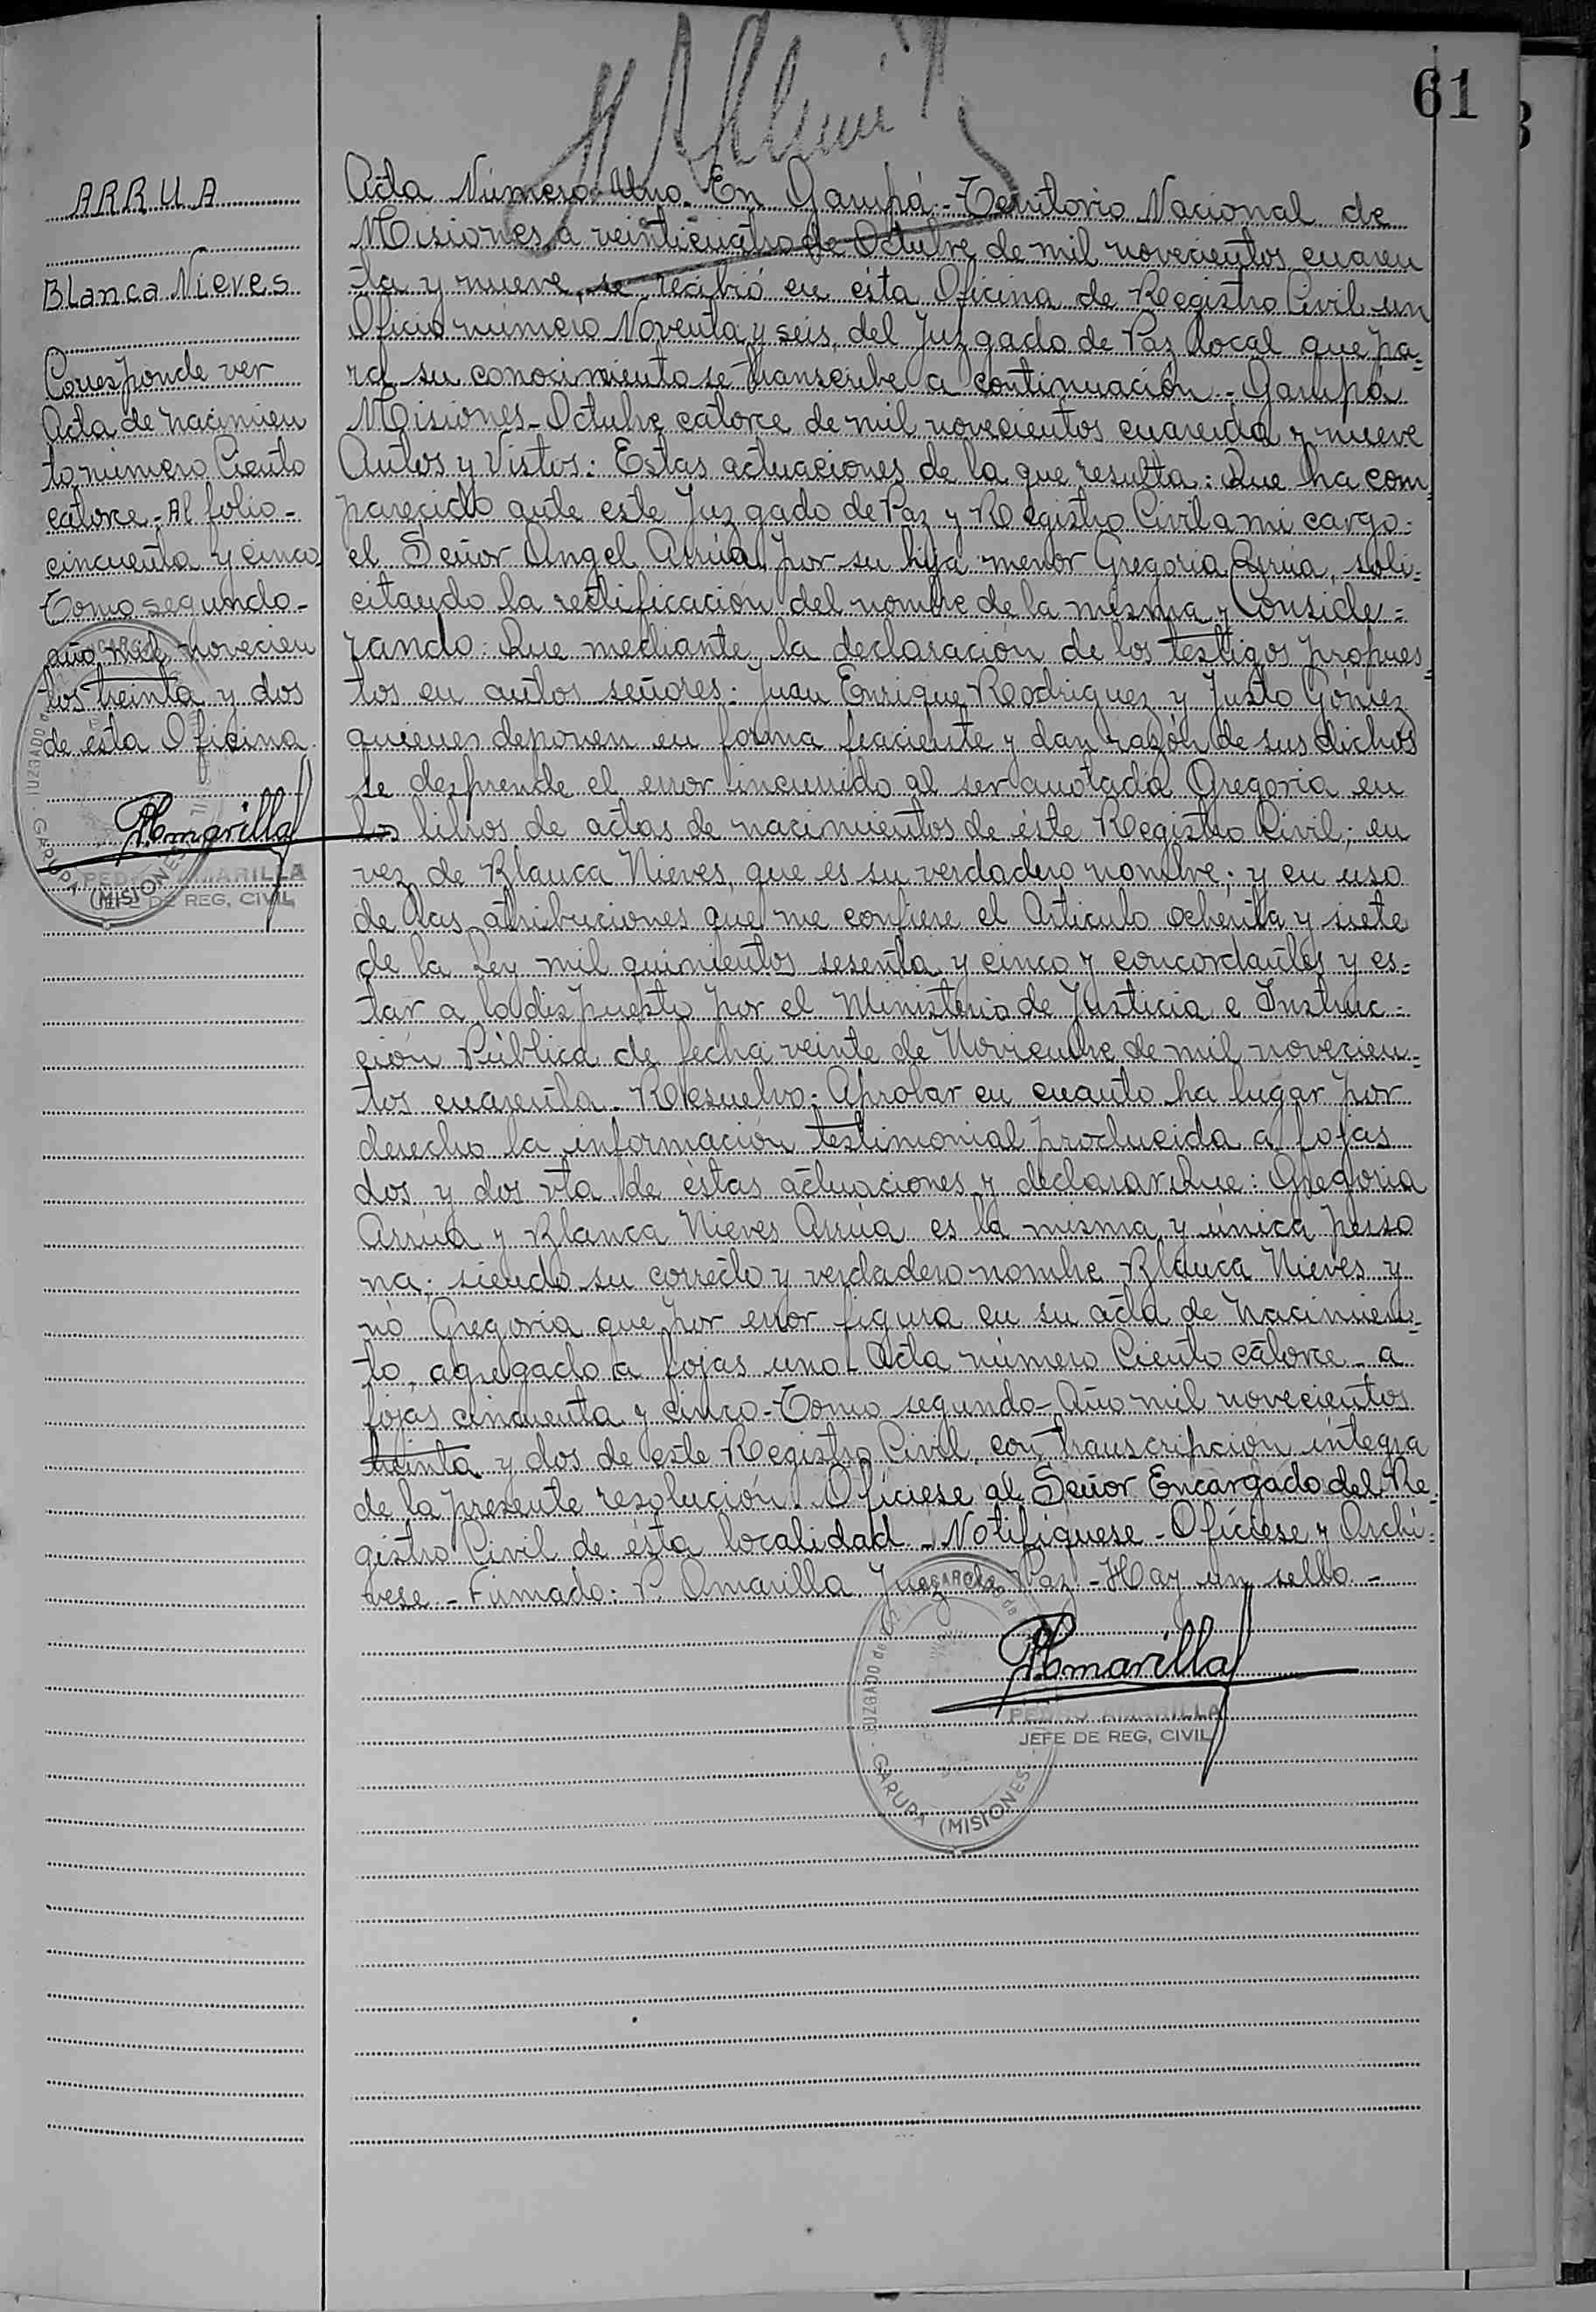 61
ARRUA
Blanca Nieves
Corresponde ver
Acta de nacimien
to número Ciento
catorce - Al folio -
cincuenta y cinco
Tomo segundo -
año mil novecien
tos treinta y dos
de ésta Oficina.
PAmarilla
PEDRO AMARILLA
JEFE DE REG, CIVIL
JUZGADO de
GARUPA (MISIONES)
Acta Número Uno. En Garupá - Territorio Nacional de
Misiones, a veinticuatro de Octubre de mil novecientos cuaren
ta y nueve, se recibió en ésta Oficina de Registro Civil un
Oficio número Noventa y seis, del Juzgado de Paz local que pa-
ra su conocimiento se transcribe a continuación - Garupá
Misiones - Octubre catorce de mil novecientos cuarenta y nueve
Autos y Vistos: Estas actuaciones de la que resulta: Que ha com
parecido ante este Juzgado de Paz y Registro Civil a mi cargo:
el Señor Angel Arrúa por su hija menor Gregoria Arrúa, soli-
citando la rectificación del nombre de la misma y Conside=
rando: Que mediante la declaración de los testigos propues-
tos en autos señores: Juan Enrique Rodriguez y Justo Gómez
quienes deponen en forma feaciente y dan razón de sus dichos
se desprende el error incurrido al ser anotada Gregoria en
los libros de actas de nacimientos de éste Registro Civil; en
vez de Blanca Nieves, que es su verdadero nombre; y en uso
de las atribuciones que me confiere el Articulo ochenta y siete
de la Ley mil quinientos sesenta y cinco y concordantes y es=
tar a lo dispuesto por el Ministerio de Justicia e Instruc=
ción Pública de fecha veinte de Noviembre de mil novecien-
tos cuarenta. Resuelvo: Aprobar en cuanto ha lugar por
derecho la información testimonial producida a fojas
dos y dos vta de éstas actuaciones y declarar Que: Gregoria
Arrúa y Blanca Nieves Arrúa es la misma y única perso
na; siendo su correcto y verdadero nombre Blanca Nieves y
nó Gregoria que por error figura en su acta de nacimien-
to, agregado a fojas uno - Acta número Ciento catorce - a
fojas cincuenta y cinco - Tomo segundo - Año mil novecientos
treinta y dos de este Registro Civil, con transcripción íntegra
de la presente resolución. Ofíciese al Señor Encargado del Re-
gistro Civil de ésta localidad - Notifíquese - Ofíciese y Archí=
vese - Firmado: P. Amarilla Juez de Paz - Hay un sello -
PAmarilla
PEDRO AMARILLA
JEFE DE REG, CIVIL
JUZGADO de
GARUPA (MISIONES)